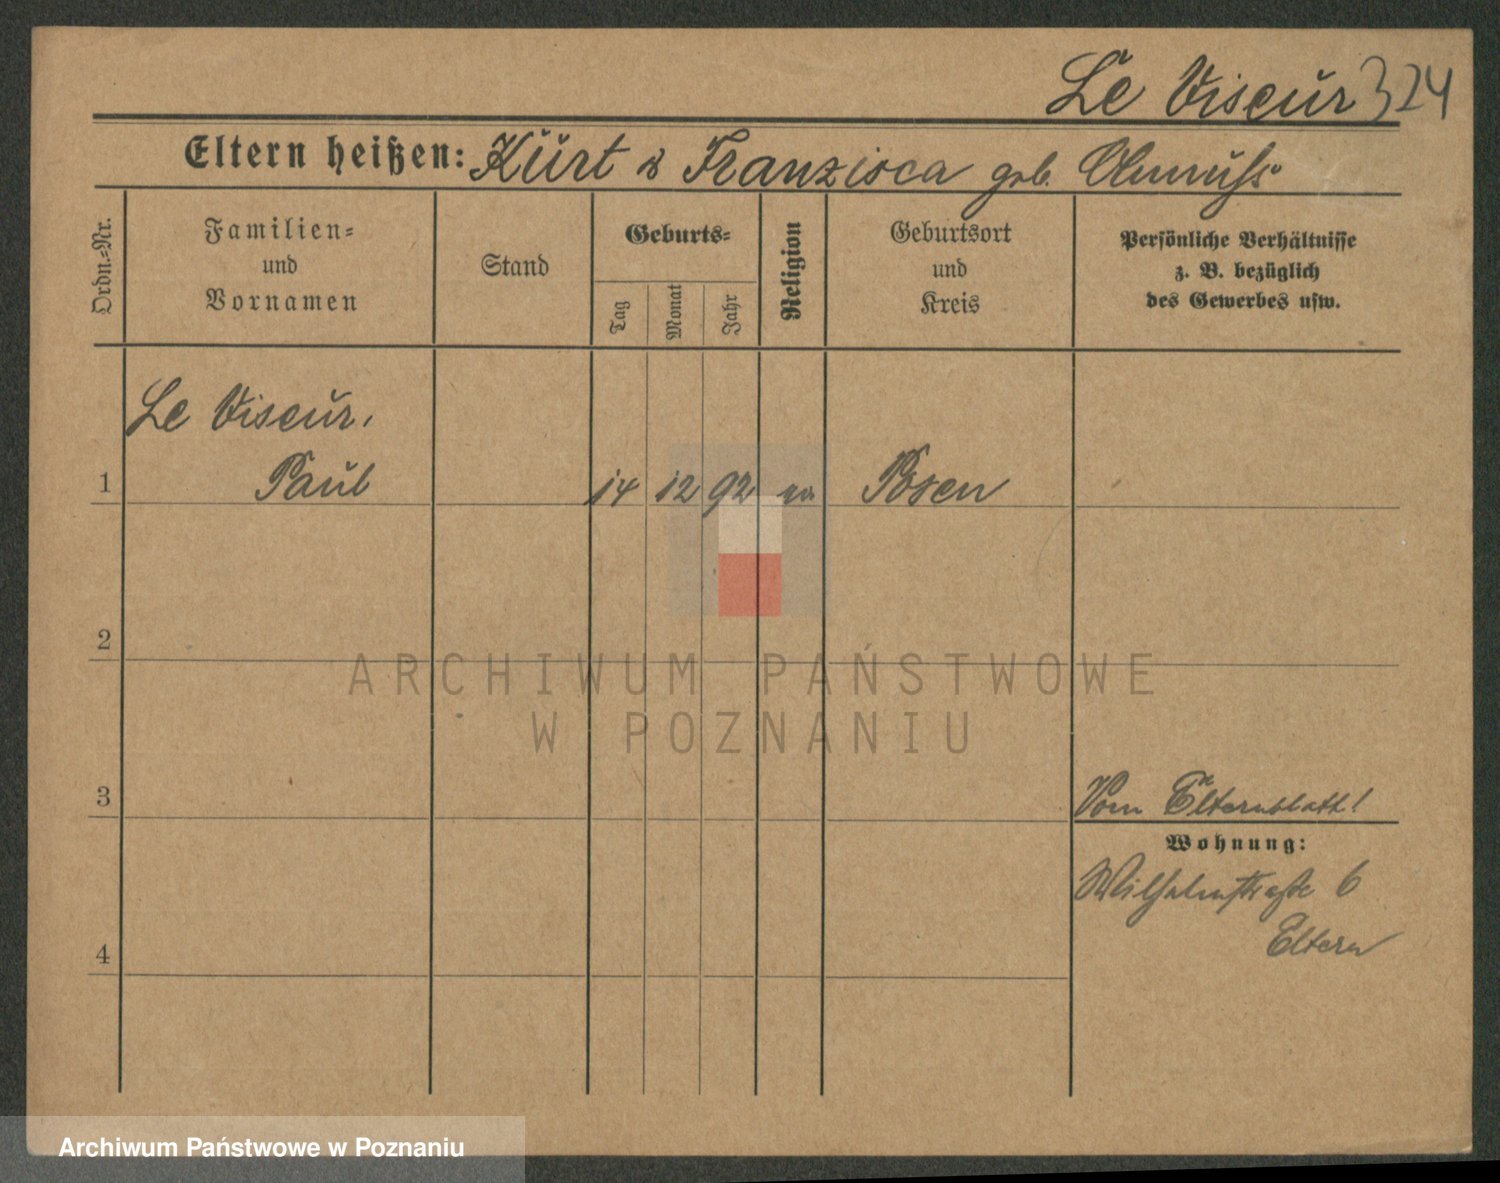 Le Viseur 324
Eltern heißen: Kurt & Franzisca geb.
Ordn.-Nr.
Familien-
und
Vornamen
Stand
Geburts-
Tag
Monat
Jahr
Religion
Geburtsort
und
Kreis
Persönliche Verhältnisse
z. B. bezüglich
des Gewerbes usw.
Le Viseur,
1 Paul 14 12 92 ev. Posen
2
3
Vom Elternblatt!
Wohnung:
Wilhelmstraße 6
Eltern
4
ARCHIWUM PAŃSTWOWE
W POZNANIU
Archiwum Państwowe w Poznaniu